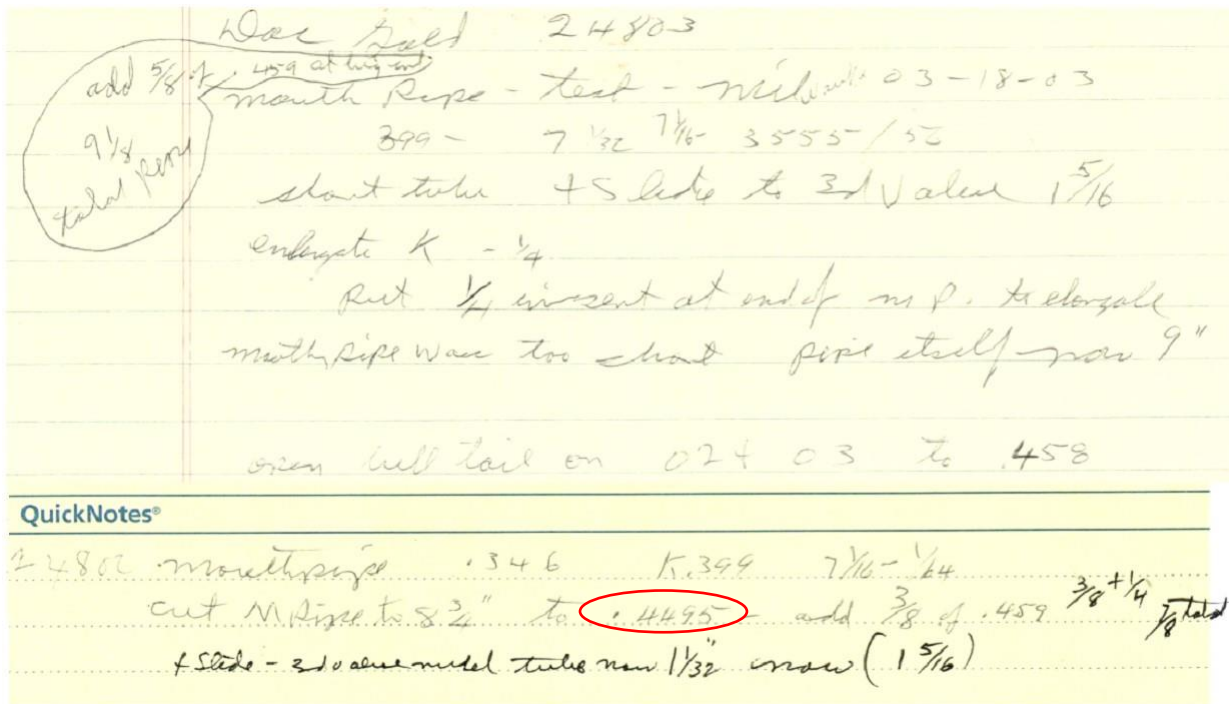 24803
add 5/8 of .459 at big end
9 1/8
total
mouth Pipe - test - 03-18-03
399 - 7 1/32 7 1/16 - 3555-/
short tube + Slide to 3d Valve 1 5/16
K - 1/4
Put 1/4 at end of m P. to elongate
mouthpipe was too short pipe itself now 9"
open bell tail on 024 03 to .458
QuickNotes®
24802 mouthpipe .346 K.399 7 1/16 - 1/64
cut MPipe to 8 3/4" to .4495 - add 3/8 of .459 3/8 + 1/4 7/8 total
+ Slide - 3d valve tube now 1 1/32" now (1 5/16)